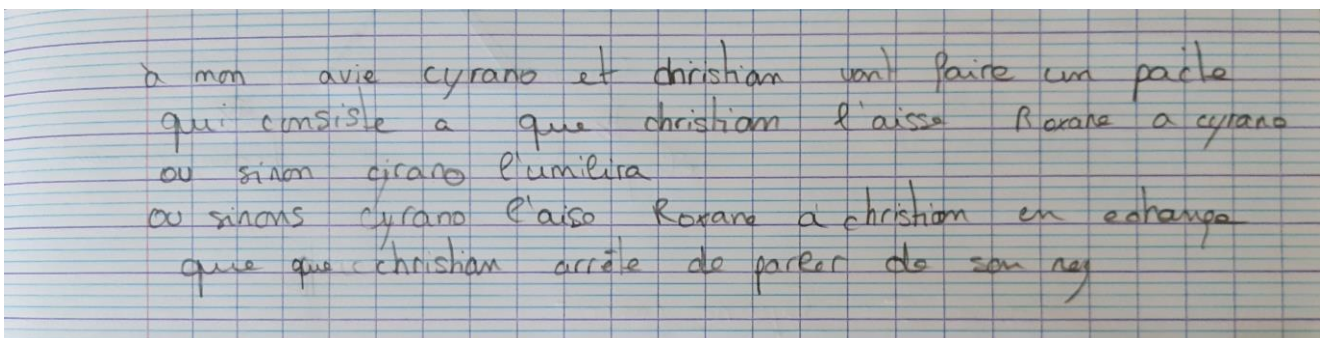 à mon avie cyrano et christian vont faire un pacte
qui consiste a que christian l'aisse Roxane a cyrano
ou sinon cirano l'umilira
ou sinons cyrano l'aise Roxane à christian en echange
que que christian arrête de parler de son nez